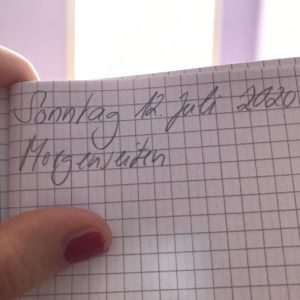 Sonntag 12. Juli 2020
Morgenseiten